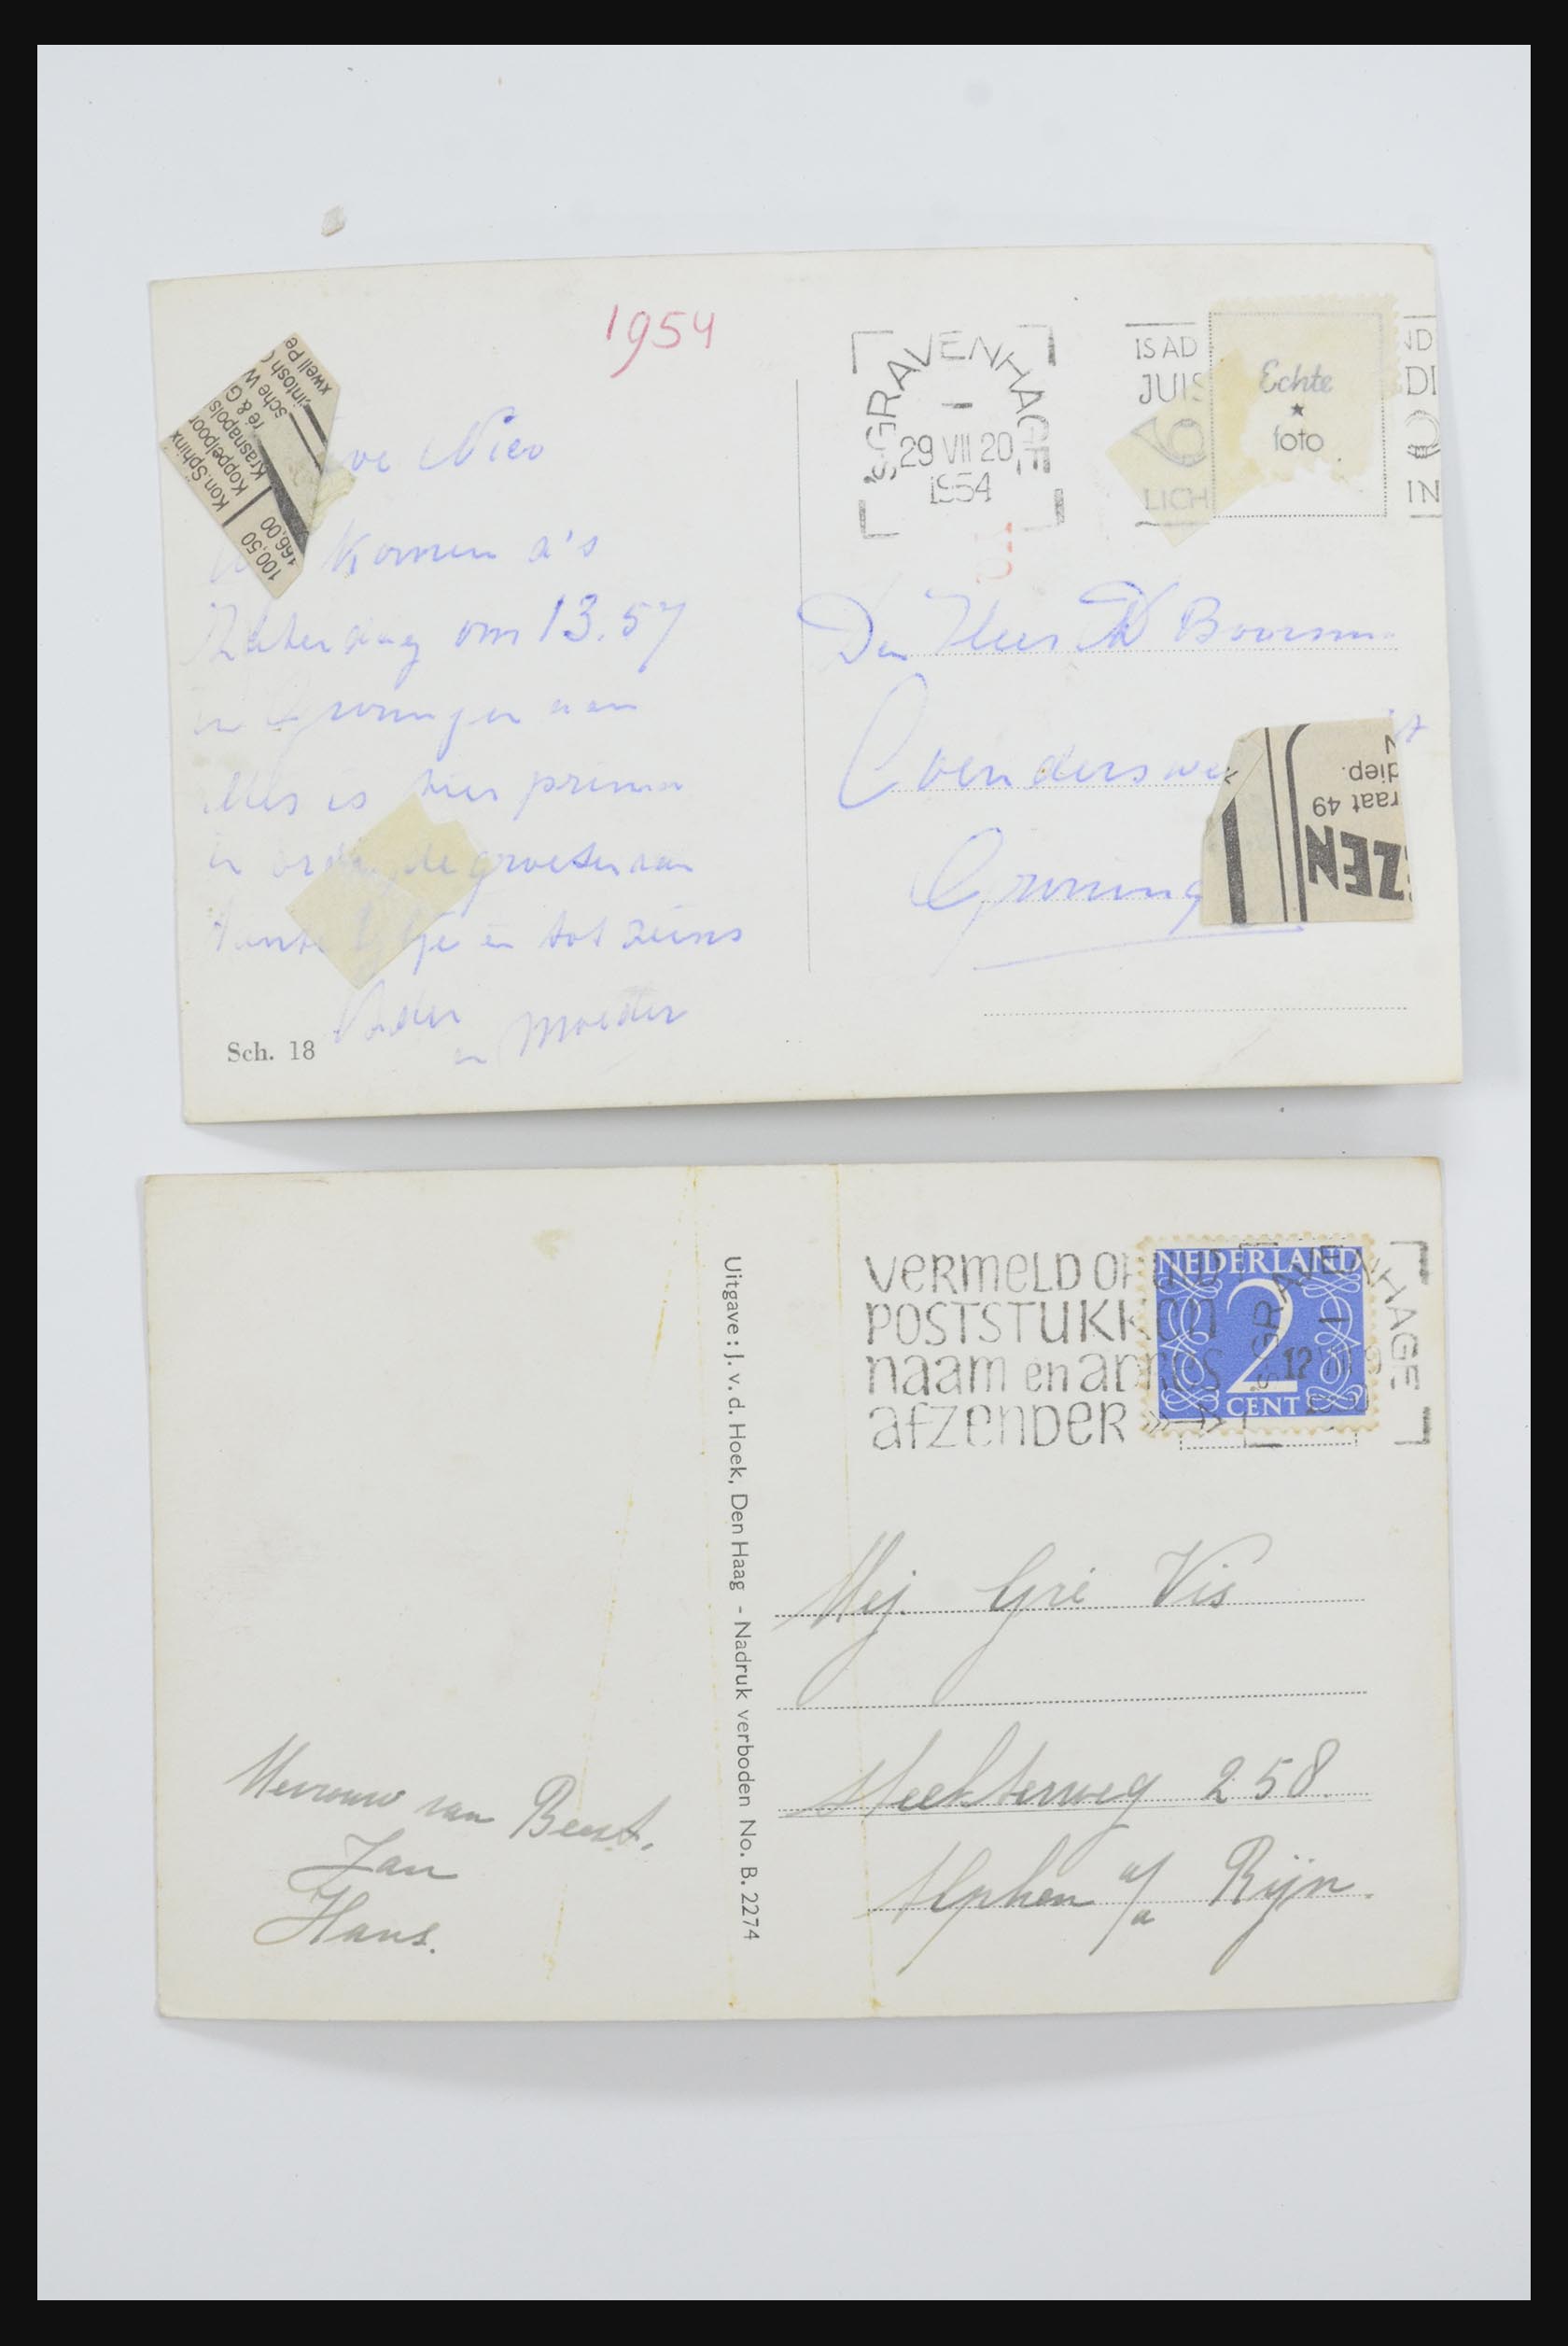 1954
'S-GRAVENHAGE
29 VII 20
1954
IS AD
JUIS
6
LICH
ND
DI
IN
Echte
foto
Kon. Sphinx
Koppelpoor
Krasnapols
ré & G
sche W
intosh (
xwell Pe
100,50
166,00
ve Nico
komen a's
Zaterdag om 13.57
in Groningen aan
Alles is hier prima
in orde, de groeten aan
tante en tot ziens
Vader
en Moeder
Sch. 18
Den Heer Th Boersma
Coenderswe
Groning
diep.
raat 49
EZEN
VERMELD OP
POSTSTUKKEN
naam en adres
afzender
'S-GRAVENHAGE
12
NEDERLAND
2
CENT
Uitgave: J. v. d. Hoek, Den Haag - Nadruk verboden No. B. 2274
Mej. Gré Vis
258
Alphen a/d Rijn.
Mevrouw van Beest.
Jan
Hans.